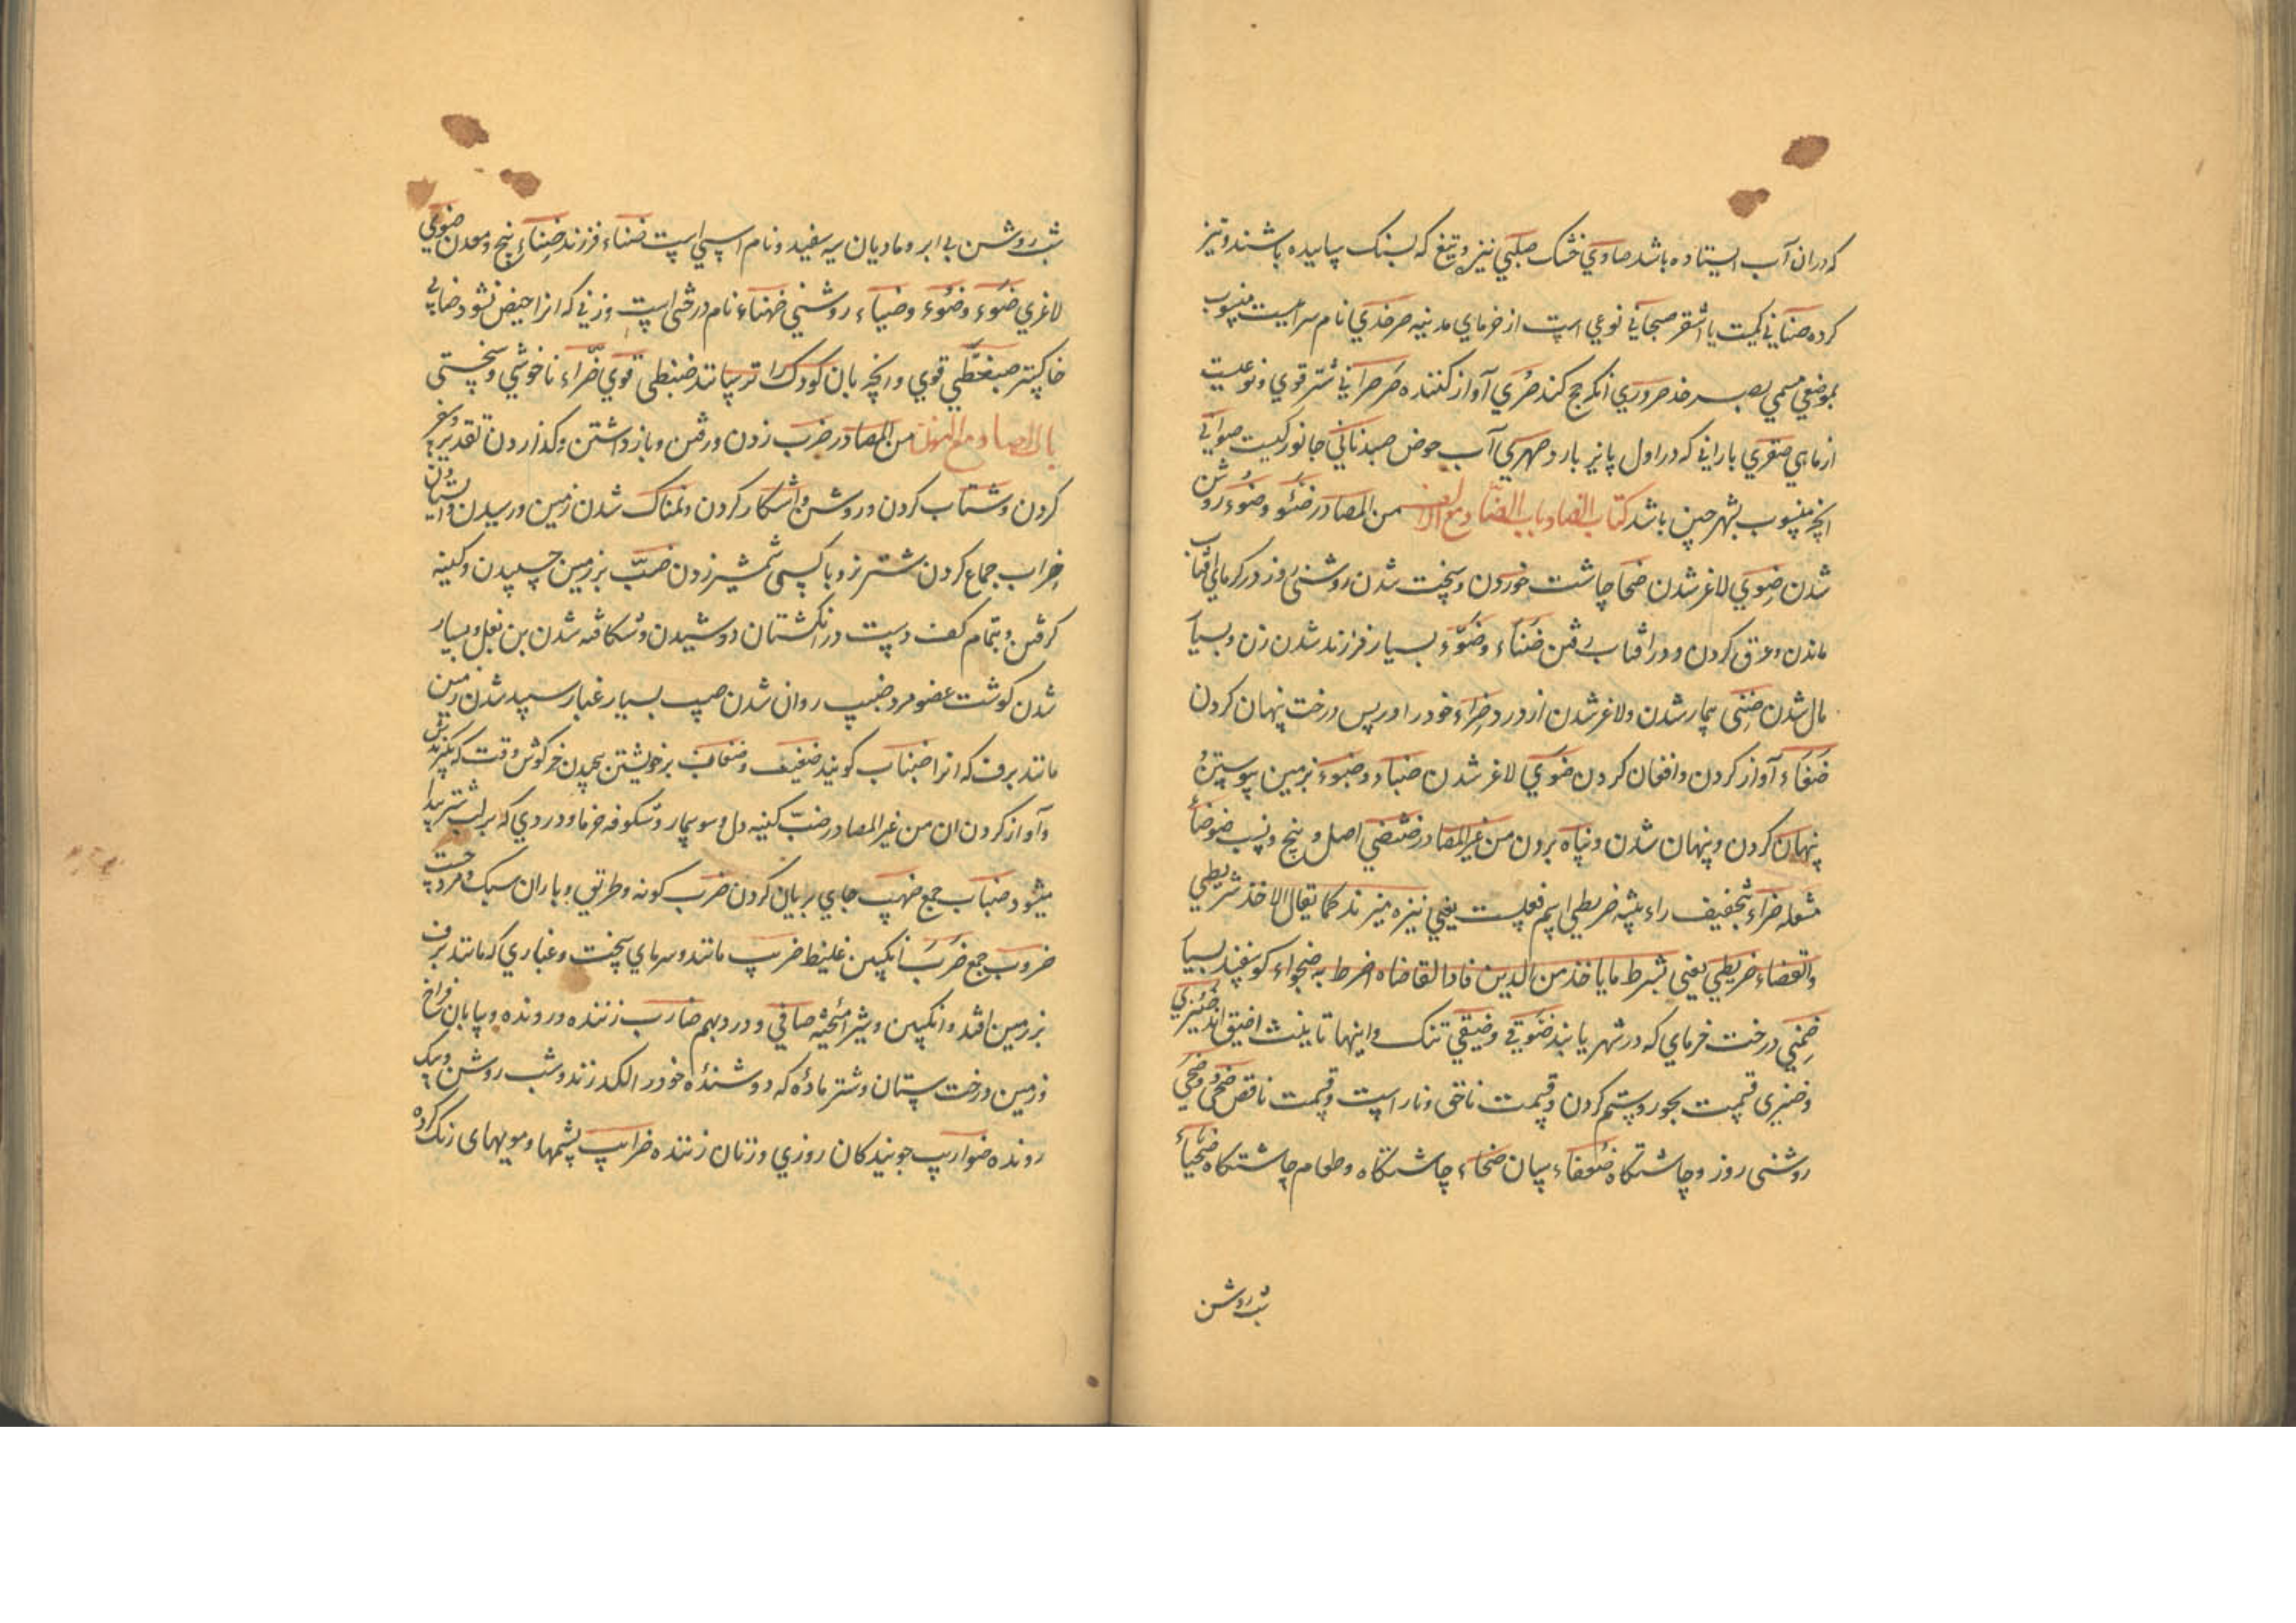 که دران آب ایستاده باشد صاوي خشک صلّبي نیزه و تیغ که بسنک ساییده باشند و تیز
کرده صنابي کمیت یا اشقر صیحاني نوعي است از خرماي مدینه صرخدي نام شرابیست منسوب
بموضعي مسمي بصرخد صروري انکه حج نکند صرّي آواز کننده صرصراني شتر قوي و نوعیست
از ماهي صقري باراني که در اول پاییز بارد صهري آب حوض صیدناني جانورکیست صواني
انچه منسوب بشهر چین باشد کتاب الضاد باب الضاد مع الالف من المصادر ضَوْء و ضُوء روشن
شدن ضوي لاغر شدن ضحا چاشت خوردن و سخت شدن روشنئ روز در کرماي آفتاب
ماندن و عرق کردن و در افتاب رفتن ضَنْاء و ضُنُوّ بسیار فرزند شدن زن و بسیار
مال شدن ضني بیمار شدن و لاغر شدن از درد ضراء خود را در پس درخت پنهان کردن
ضغاء آواز کردن و افغان کردن ضوي لاغر شدن ضباء و ضبوء بزمین پیوستن و
پنهان کردن و پنهان شدن و پناه بردن من غیر المصادر ضئضي اصل و بیخ و نسب ضوضاء
مشعله ضراء بتخفیف راء بیشه ضریطي اسم فعلست یعني تیزه میزند کما یقال الاخذ شریطي
والقضاء ضریطي یعني بشرط ما یاخذ من الدین فاذا القاضاه اضرط به ضجواء کوسفند بسیار
ضمني درخت خرماي که در شهر یابند ضوقي و ضیقي تنک و اینها تانیث اضیق اند ضئیزي
و ضیزي قسمت بجور و ستم کردن و قسمت ناحق و ناراست و قسمت ناقص ضحي و ضحي
روشني روز و چاشتکاه ضعفاء سپان ضحاء چاشتکاه و طعام چاشتکاه ضحیاء
شب روشن
شب روشن بي ابر و مادیان سیه سفید و نام اسپي است ضناء فرزند ضناء بیخ و معدن ضوي
لاغري ضَوْء و ضُوء و ضیاء روشني ضهیاء نام درختي است و زني که انرا حیض نشود ضابي
خاکستر ضبغطي قوي و انچه بان کودک را ترسانند ضبنطي قوي ضرّاء ناخوشي و سختي
باب الضاد مع الباء من المصادر ضرب زدن و رفتن و باز داشتن و کذاردن تقدیر و غیره
کردن و شتاب کردن و روشن و اشکار کردن و نمناک شدن زمین و رسیدن و ایستادن
ضراب جماع کردن شتر نر و با کسي شمشیر زدن ضبّ بر زمین چسپیدن و کینه
کرفتن و بتمام کف دست در انکشتان دوشیدن و شکافته شدن بن بغل و بسیار
شدن کوشت عضو مرد ضبیب روان شدن بسیار غبار سپید شدن زمین
مانند برف که انرا ضباب کویند ضغیب و ضغاب بر خویشتن پیچیدن خرکوش وقت که بکیرندش
و آواز کردن ان من غیر المصادر ضبّ کینه دل و سوسمار و شکوفه خرما و دردي که بر لب شتر پیدا
میشود ضباب جمع ضهب جاي بریان کردن ضرب کونه و طریق و باران سبک و مرد چست
ضروب جمع ضَرَبْ انکبین غلیظ ضریب مانند و سرماي سخت و غباري که مانند برف
بر زمین افتد و انکبین و شیر امیخته صافي و درد بهم ضارب زننده و رونده و بیابان فراخ
و زمین درخت ستان و شتر ماده که دوشنده خود را لکد زند و شب روشن و سبک
رونده ضوارب جویندکان روزي و زنان زننده ضرایب پشمها و مویهای رنک کرده